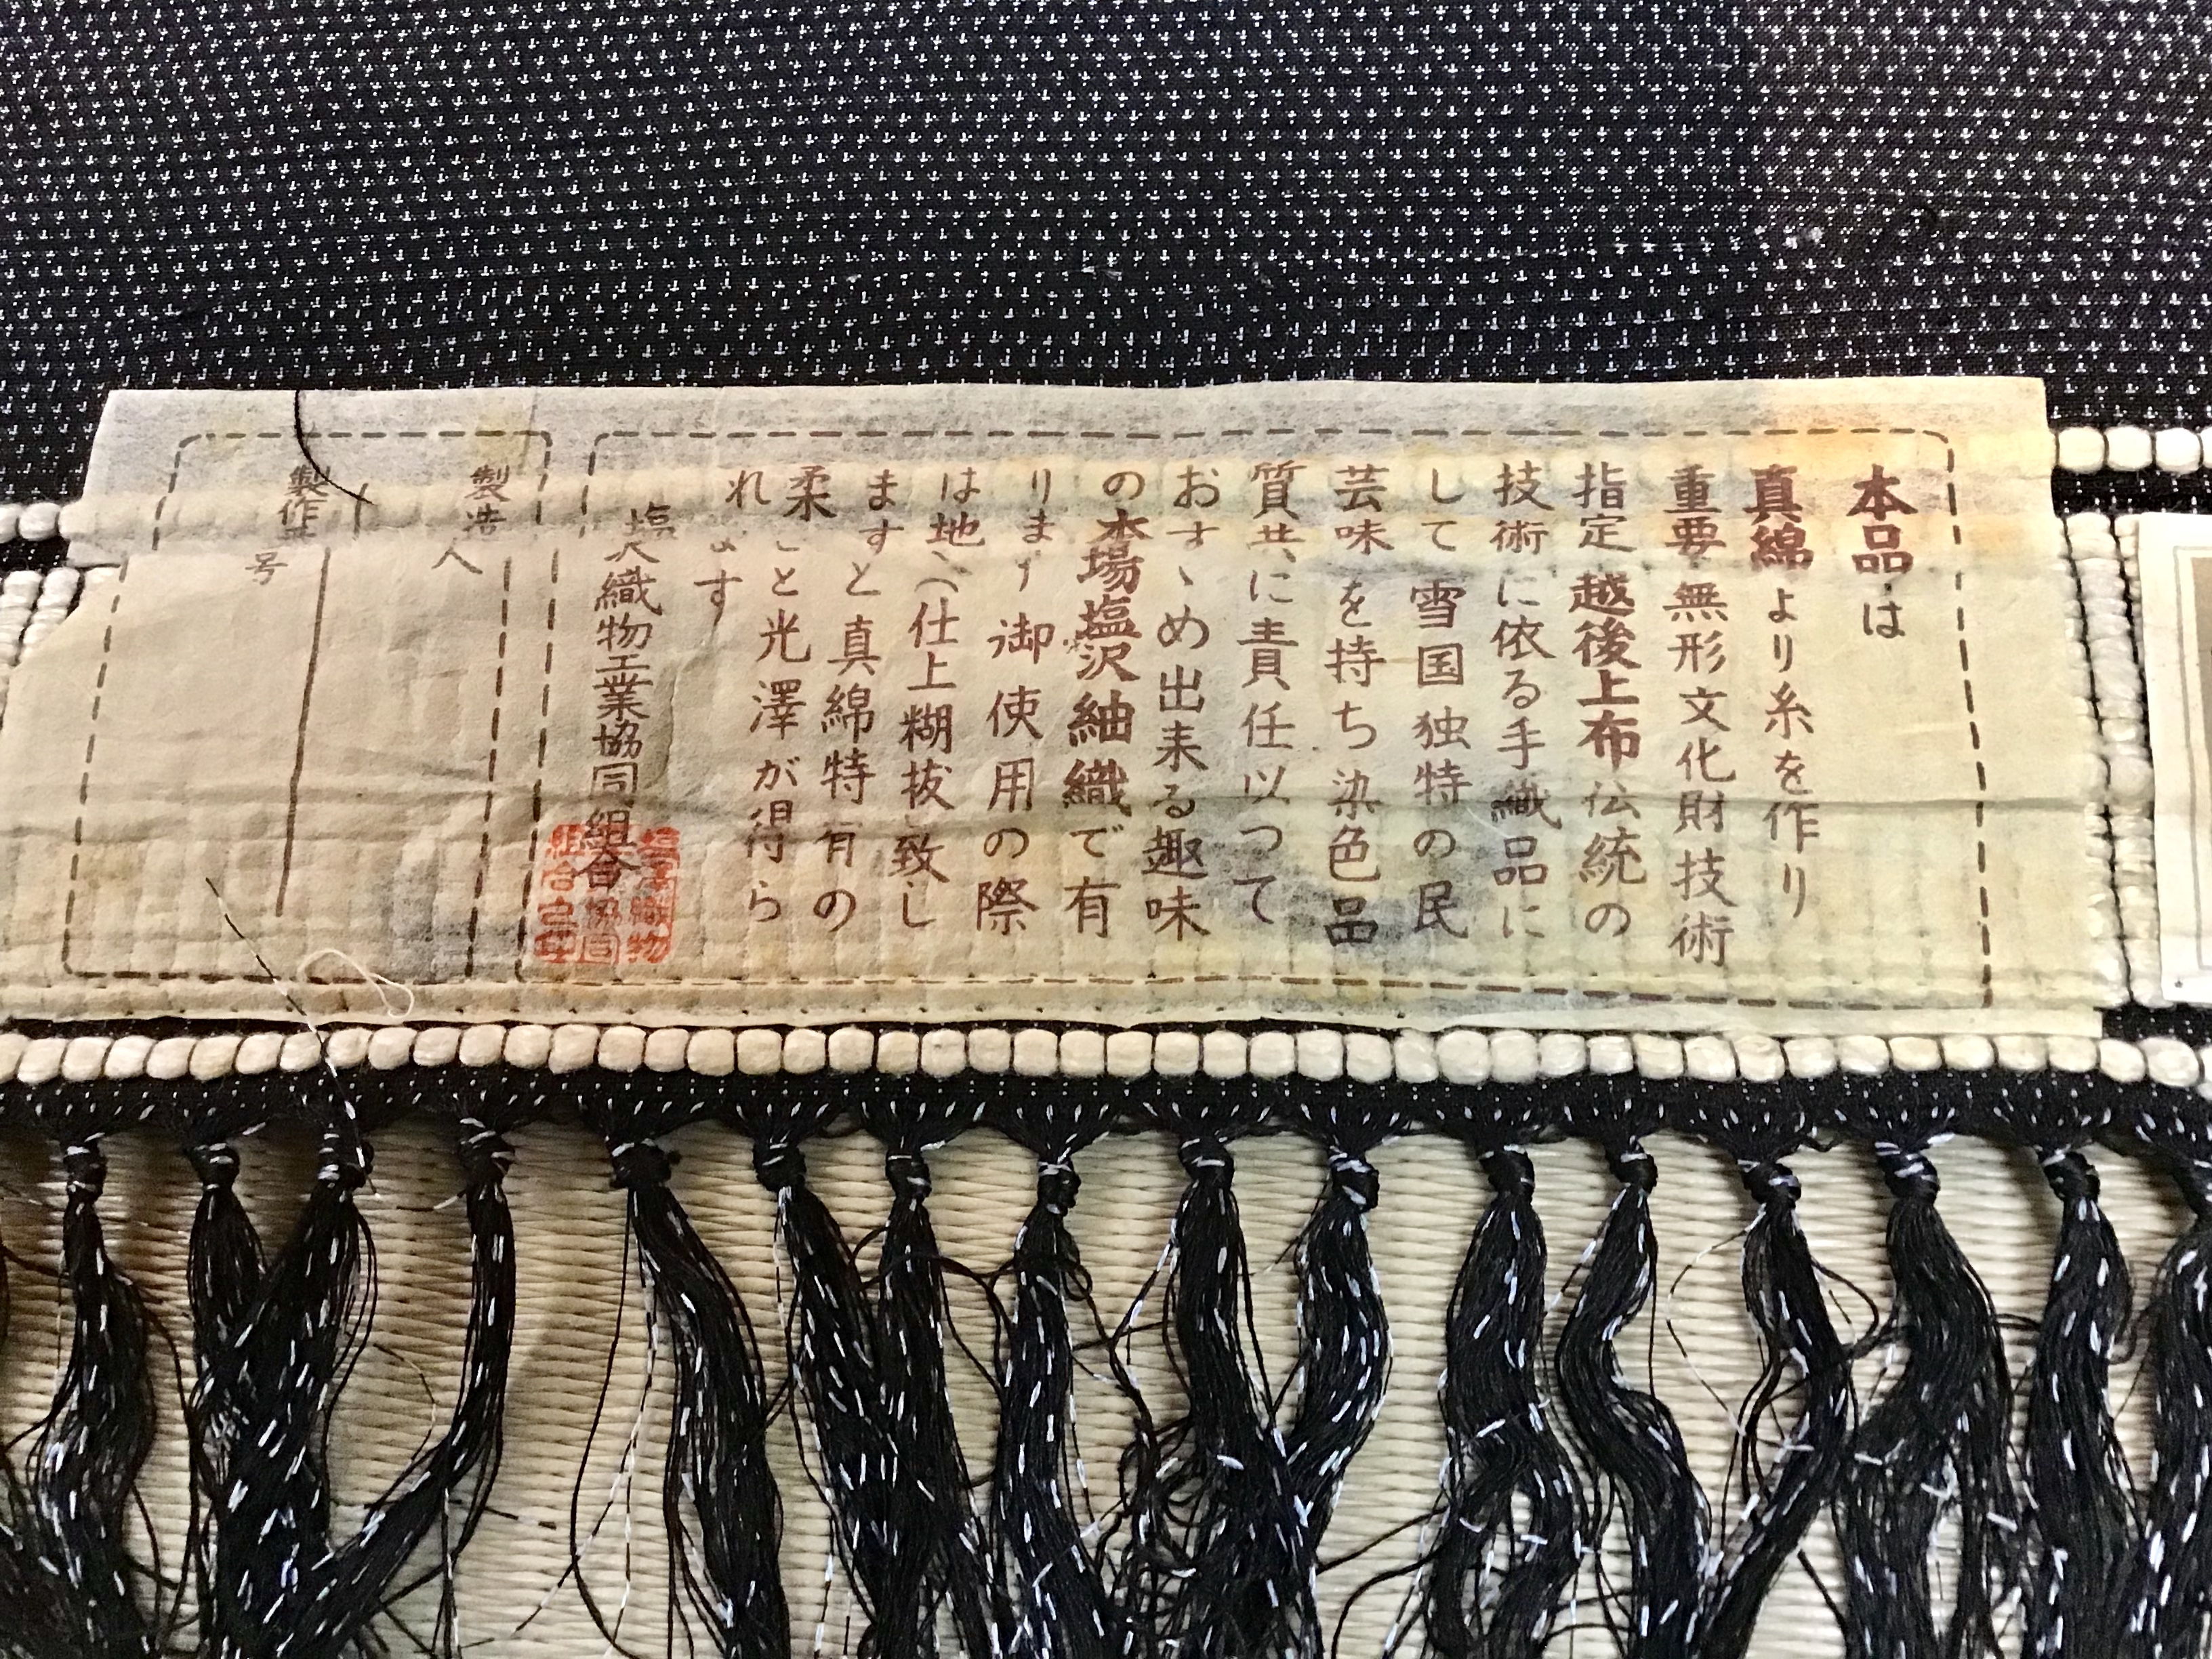 本品は
真綿より糸を作り
重要無形文化財技術
指定越後上布伝統の
技術に依る手織品に
して雪国独特の民
芸味を持ち染色品
質共に責任以って
おすゝめ出来る趣味
の本場塩沢紬織で有
ります 御使用の際
は地入(仕上糊抜)致し
ますと真綿特有の
柔
と光澤が得ら
れます
塩沢織物工業協同組合
製造人
製作
号